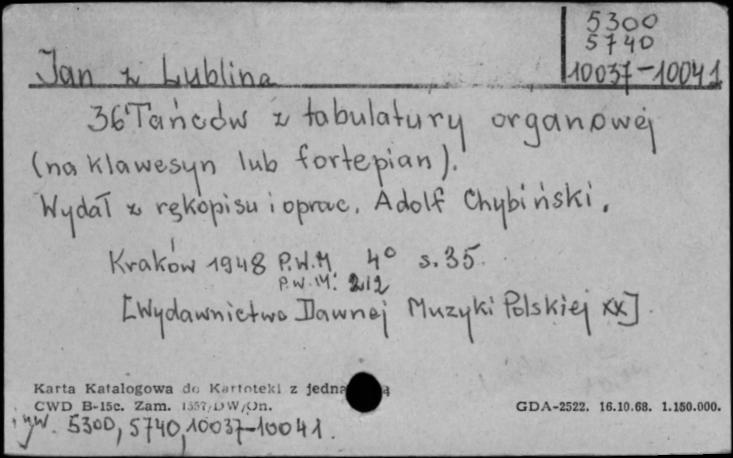 5300
5740
Jan z Lublina 10037-10041
36 Tańców z tabulatury organowej
(na klawesyn lub fortepian).
Wydał z rękopisu i oprac. Adolf Chybiński.
Kraków 1948 P.W.M 4° s. 35.
P.W.M. 212
[Wydawnictwo Dawnej Muzyki Polskiej XX]
Karta Katalogowa do Kartoteki z jedną
CWD B-15c. Zam. 1557/DW/On. GDA-2522. 16.10.68. 1.150.000.
inw. 5300, 5740, 10037-10041.